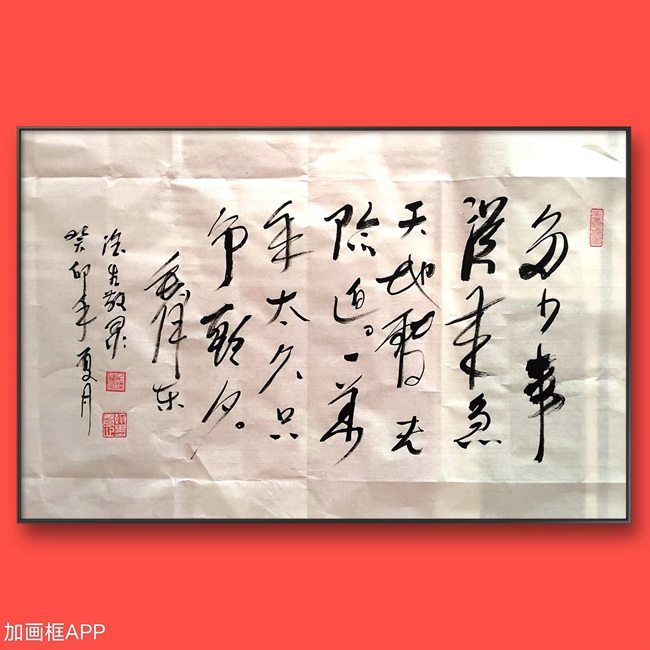 多少事
從来急
天地轉光
陰迫。一萬
年太久只
争朝夕。
毛泽东
敬录
癸卯年夏月
加画框APP